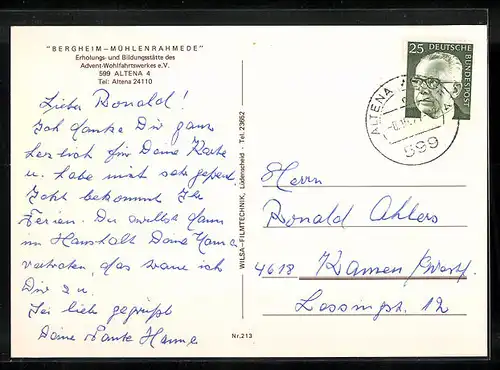 "BERGHEIM-MÜHLENRAHMEDE"
Erholungs- und Bildungsstätte des
Advent-Wohlfahrtswerkes e.V.
599 ALTENA 4
Tel: Altena 24110
Lieber Ronald!
Ich danke Dir ganz
herzlich für Deine Karte
u. habe mich sehr gefreut.
Jetzt bekommst Du
Ferien. Du willst dann
im Haushalt Deine Mama
vertreten, das traue ich
Dir zu.
Sei lieb gegrüßt
Deine Tante Hanne
WILSA-FILMTECHNIK, Lüdenscheid - Tel. 23662
Nr. 213
25
DEUTSCHE BUNDESPOST
ALTENA
599
Herrn
Ronald Ahlers
4618 Kamen/Westf.
Lessingstr. 12